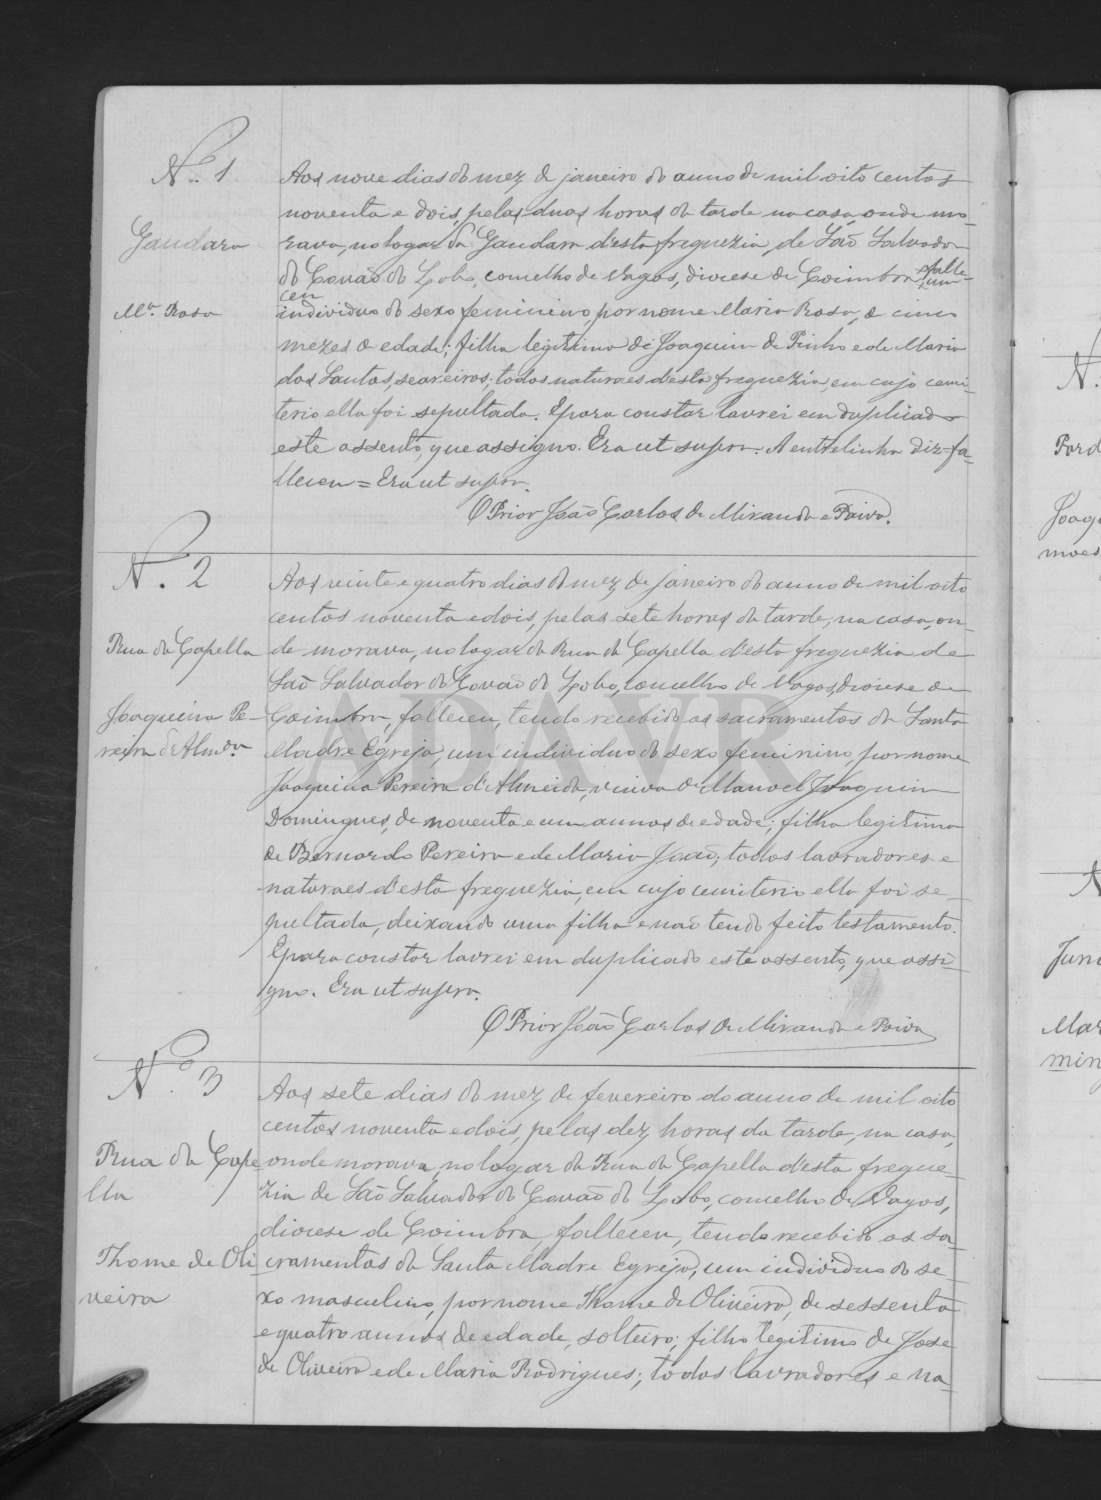 N.º 1
Gandara
M.ª Rosa
Aos nove dias do mez de janeiro do anno de mil oito centos
noventa e dois, pelas duas horas da tarde na casa, onde mo-
rava, no logar da Gandara d'esta freguezia de São Salvador
do Covão do Lobo, concelho de Vagos, diocese de Coimbra, falle-
ceu um
individuo do sexo feminino, por nome Maria Rosa, de cinco
mezes de edade; filha legitima de Joaquim de Pinho e de Maria
dos Santos, seareiros, todos naturaes d'esta freguezia, em cujo cemi-
terio ella foi sepultada. E para constar lavrei em duplicado
este assento, que assigno. Era ut supra. A entrelinha diz = fa-
lleceu = Era ut supra.
O Prior João Carlos de Miranda e Paiva.
N.º 2
Rua da Capella
Joaquina Pe-
reira d'Almd.ª
Aos vinte e quatro dias do mez de janeiro do anno de mil oito
centos noventa e dois, pelas sete horas da tarde, na casa, on-
de morava, no logar da Rua da Capella d'esta freguezia de
São Salvador do Covão do Lobo, concelho de Vagos, diocese de
Coimbra, falleceu, tendo recebido os sacramentos da Santa
Madre Egreja, um individuo do sexo feminino, por nome
Joaquina Pereira d'Almeida, viuva de Manoel Joaquim
Domingues, de noventa e um annos de edade; filha legitima
de Bernardo Pereira e de Maria João, todos lavradores e
naturaes d'esta freguezia, em cujo cemiterio ella foi se-
pultada, deixando uma filha e não tendo feito testamento.
E para constar lavrei em duplicado este assento, que assi-
gno. Era ut supra.
O Prior João Carlos de Miranda e Paiva
N.º 3
Rua da Cape
lla
Thome de Oli
veira
Aos sete dias do mez de fevereiro do anno de mil oito
centos noventa e dois, pelas dez horas da tarde, na casa,
onde morava, no logar da Rua da Capella d'esta fregue-
zia de São Salvador do Covão do Lobo, concelho de Vagos,
diocese de Coimbra, falleceu, tendo recebido os sa-
cramentos da Santa Madre Egreja, um individuo do se-
xo masculino, por nome Thome de Oliveira, de sessenta
e quatro annos de edade, solteiro; filho legitimo de José
de Oliveira e de Maria Rodrigues; todos lavradores e na-
ADAVR
N.
Mar